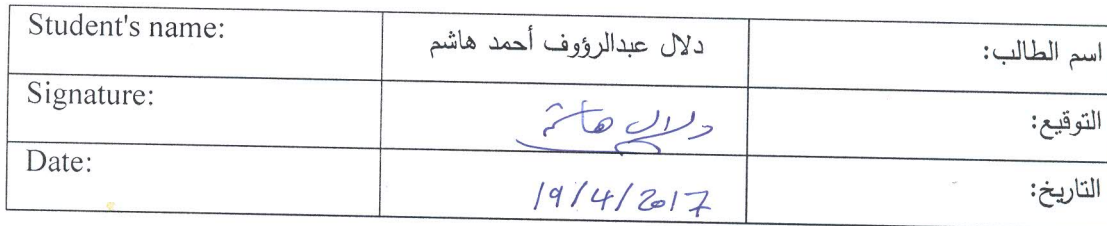 Student's name: دلال عبدالرؤوف أحمد هاشم اسم الطالب:
Signature: دلال هاشم التوقيع:
Date: 19/4/2017 التاريخ: